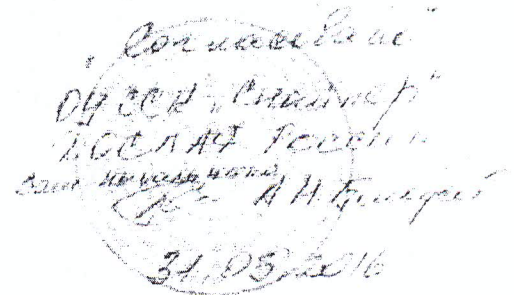 „Согласовано"
ОУ ССК „Снайпер"
ДОСААФ России
зам начальника
А Н
31.05.2016